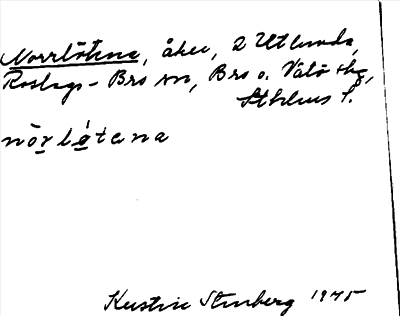 Norrlötena, åker, 2 Utlunda,
Roslags-Bro sn, Bro o. Vätö skg,
Sthlms l.
nörlötena
Kerstin Stenberg 1975